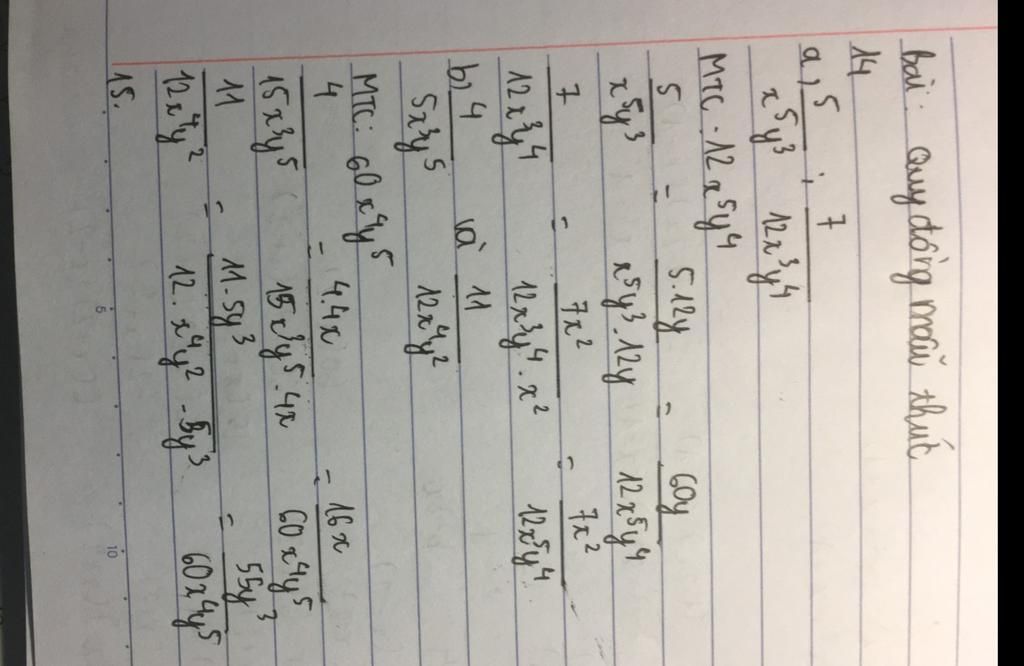 Bài: Quy đồng mẫu thức
14
a, 5/x⁵y³ ; 7/12x³y⁴
MTC. 12x⁵y⁴
5/x⁵y³ = 5.12y/x⁵y³.12y = 60y/12x⁵y⁴
7/12x³y⁴ = 7x²/12x³y⁴.x² = 7x²/12x⁵y⁴
b, 4/5x³y⁵ và 11/12x⁴y²
MTC: 60x⁴y⁵
4/15x³y⁵ = 4.4x/15x³y⁵.4x = 16x/60x⁴y⁵
11/12x⁴y² = 11.5y³/12.x⁴y².5y³ = 55y³/60x⁴y⁵
15.
5
10